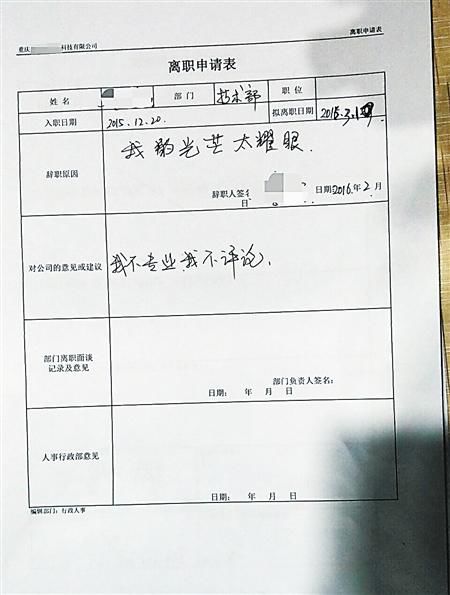 重庆 科技有限公司 离职申请表
离职申请表
姓名 部门 技术部 职位
入职日期 2015.12.20. 拟离职日期 2015.3.1
我的光芒太耀眼.
辞职原因
辞职人签名 日期:2016年2月
日
对公司的意见或建议 我不专业,我不评论.
部门离职面谈
记录及意见
部门负责人签名:
日期: 年 月 日
人事行政部意见
日期: 年 月 日
编制部门:行政人事